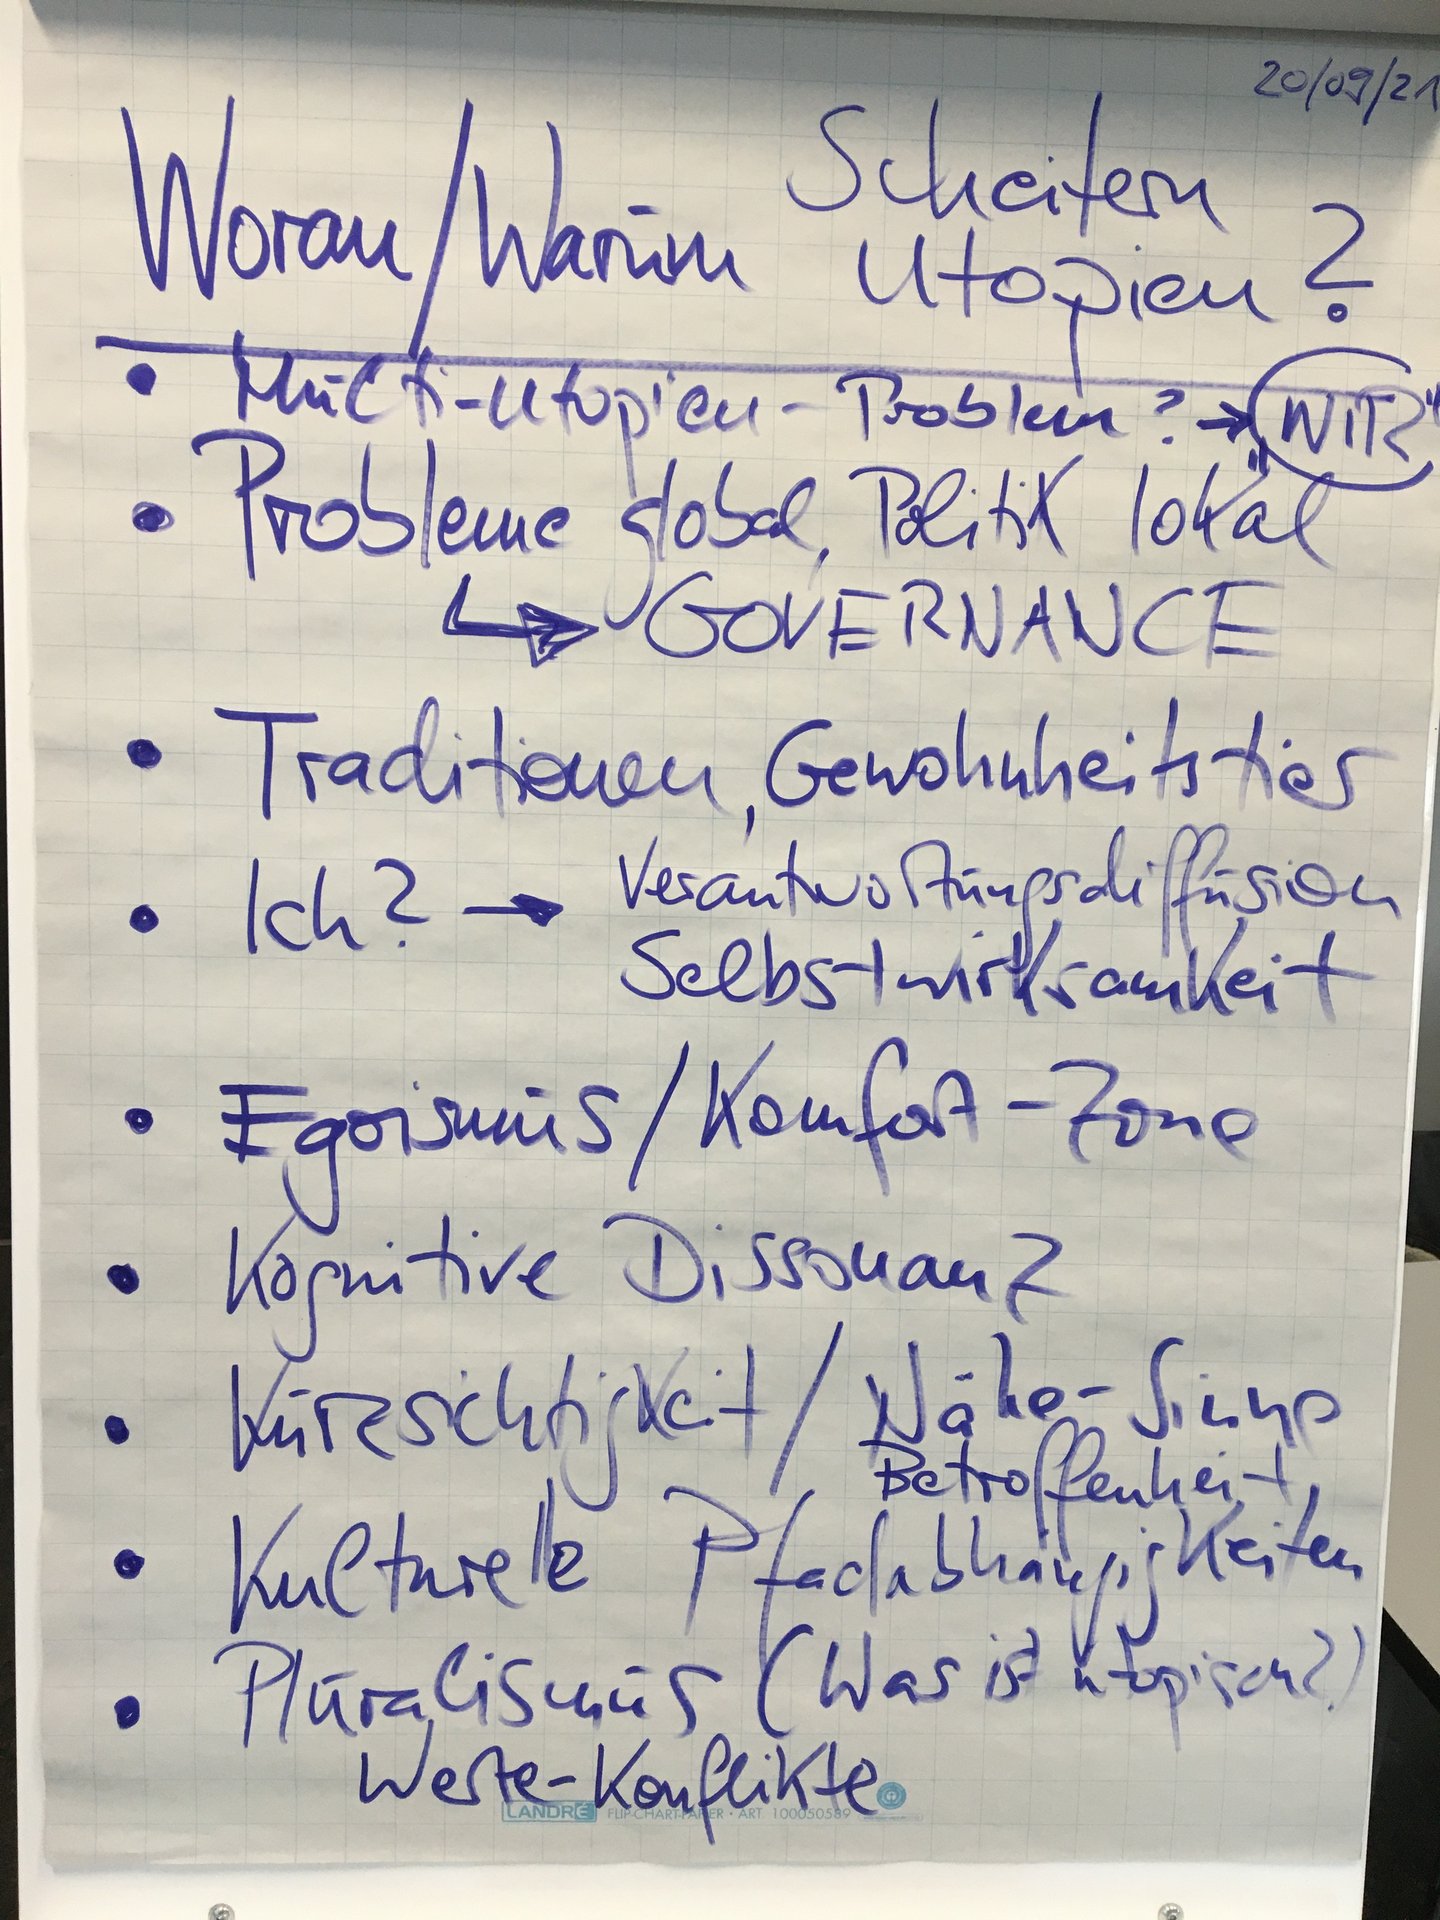 20/09/21
Woran/Warum Scheitern
Utopien?
• Multi-Utopien-Problem? → „WIR"
• Probleme global, Politik lokal
↳ GOVERNANCE
• Traditionen, Gewohnheitstier
• Ich? → Verantwortungsdiffusion
Selbstwirksamkeit
• Egoismus/Komfort-Zone
• Kognitive Dissonanz
• Kurzsichtigkeit/Nähe-Sinne
Betroffenheit
• Kulturelle Pfadabhängigkeiten
• Pluralismus (Was ist utopisch?)
Werte-Konflikte
LANDRÉ FLIP-CHART-PAPIER • ART. 100050589